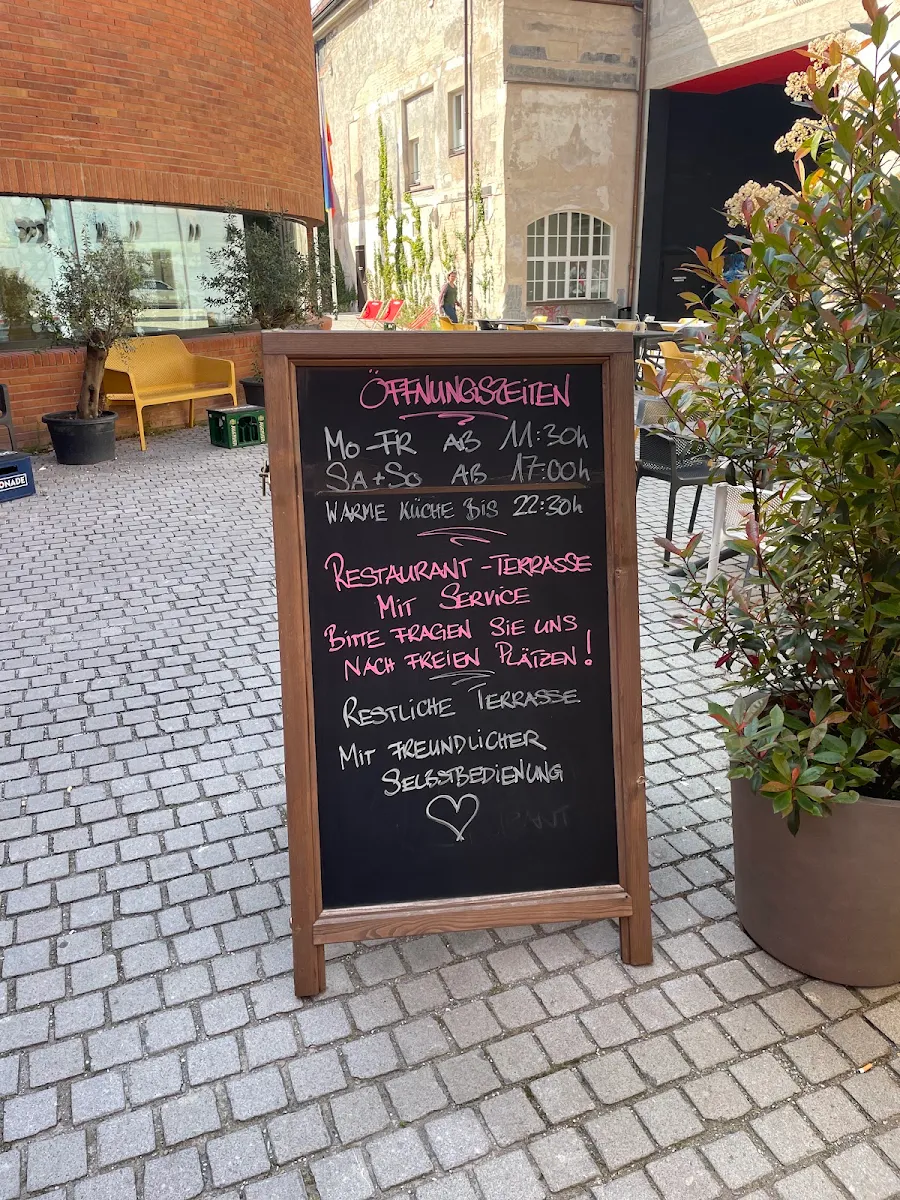 ÖFFNUNGSZEITEN
MO-FR AB 11:30h
SA+SO AB 17:00h
WARME KÜCHE BIS 22:30h
RESTAURANT-TERRASSE
MIT SERVICE
BITTE FRAGEN SIE UNS
NACH FREIEN PLÄTZEN!
RESTLICHE TERRASSE
MIT FREUNDLICHER
SELBSTBEDIENUNG
ONADE